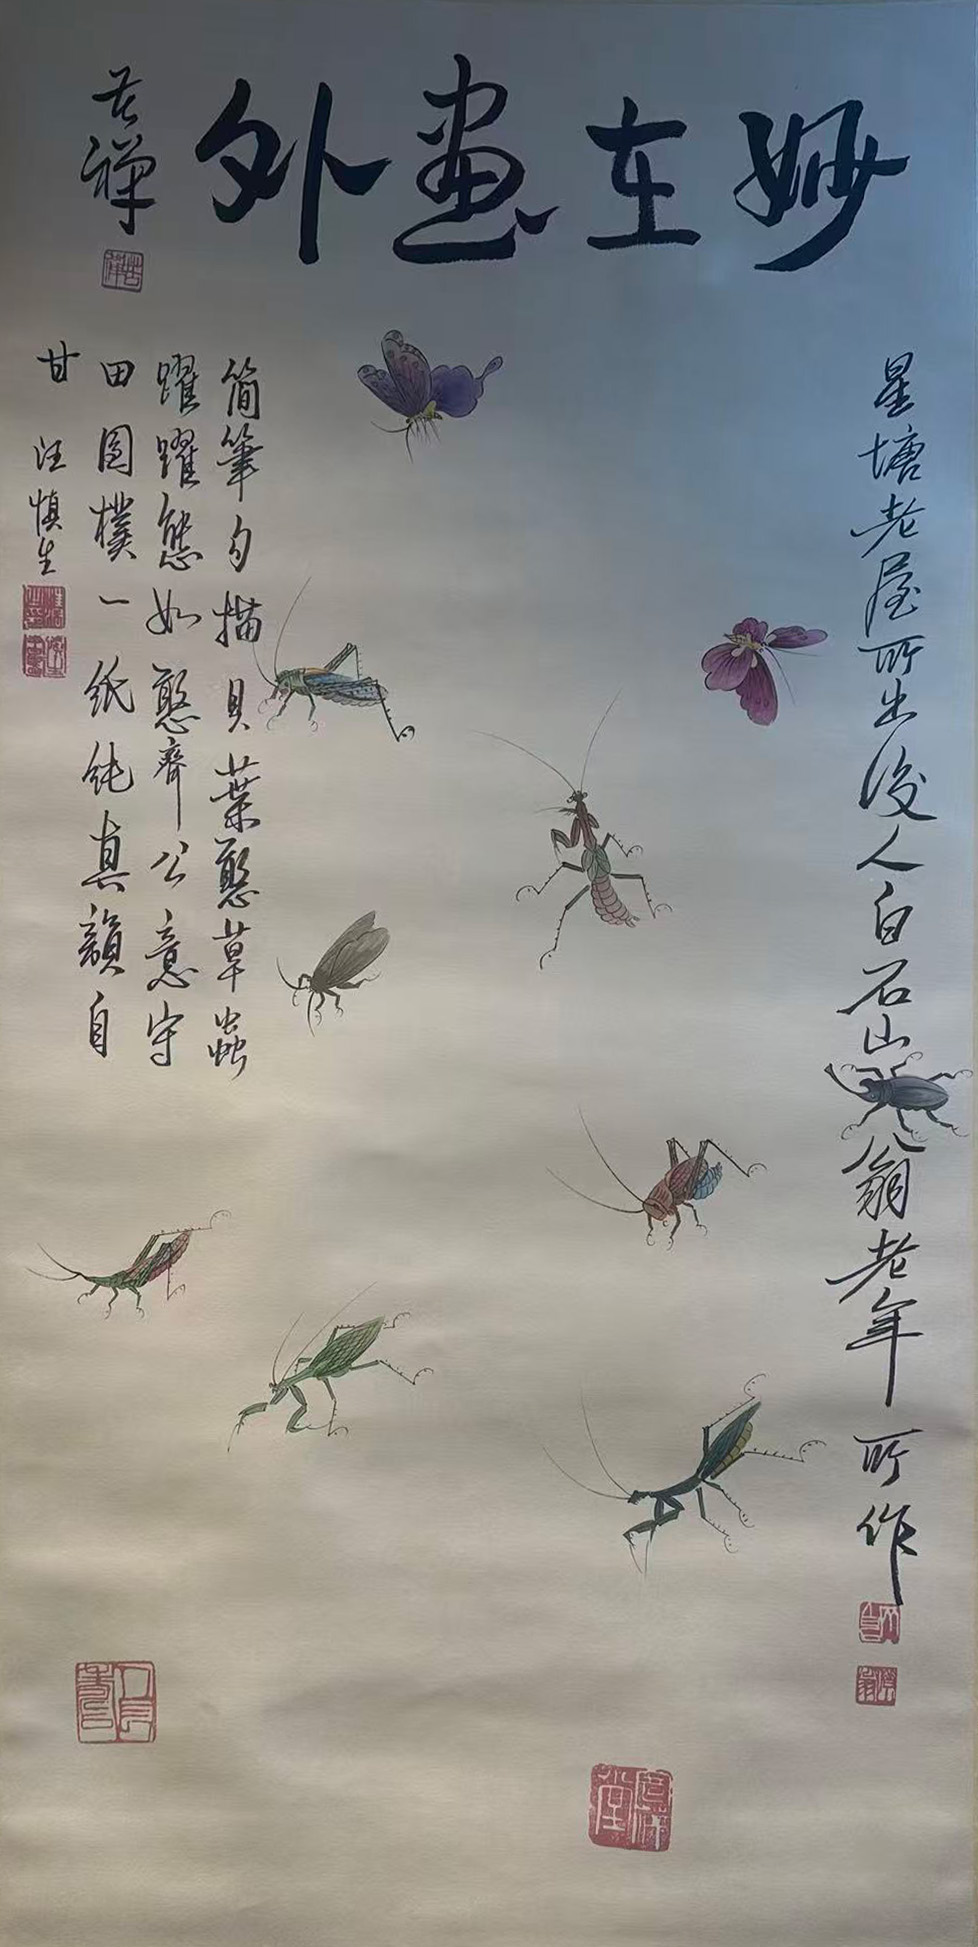 妙在畫外
苦禪
星塘老屋所出後人白石山翁老年所作
簡筆勾描貝葉憨草蟲
躍躍態如憨齊公意守
田園樸一紙純真韻自
甘 汪慎生
苦禪